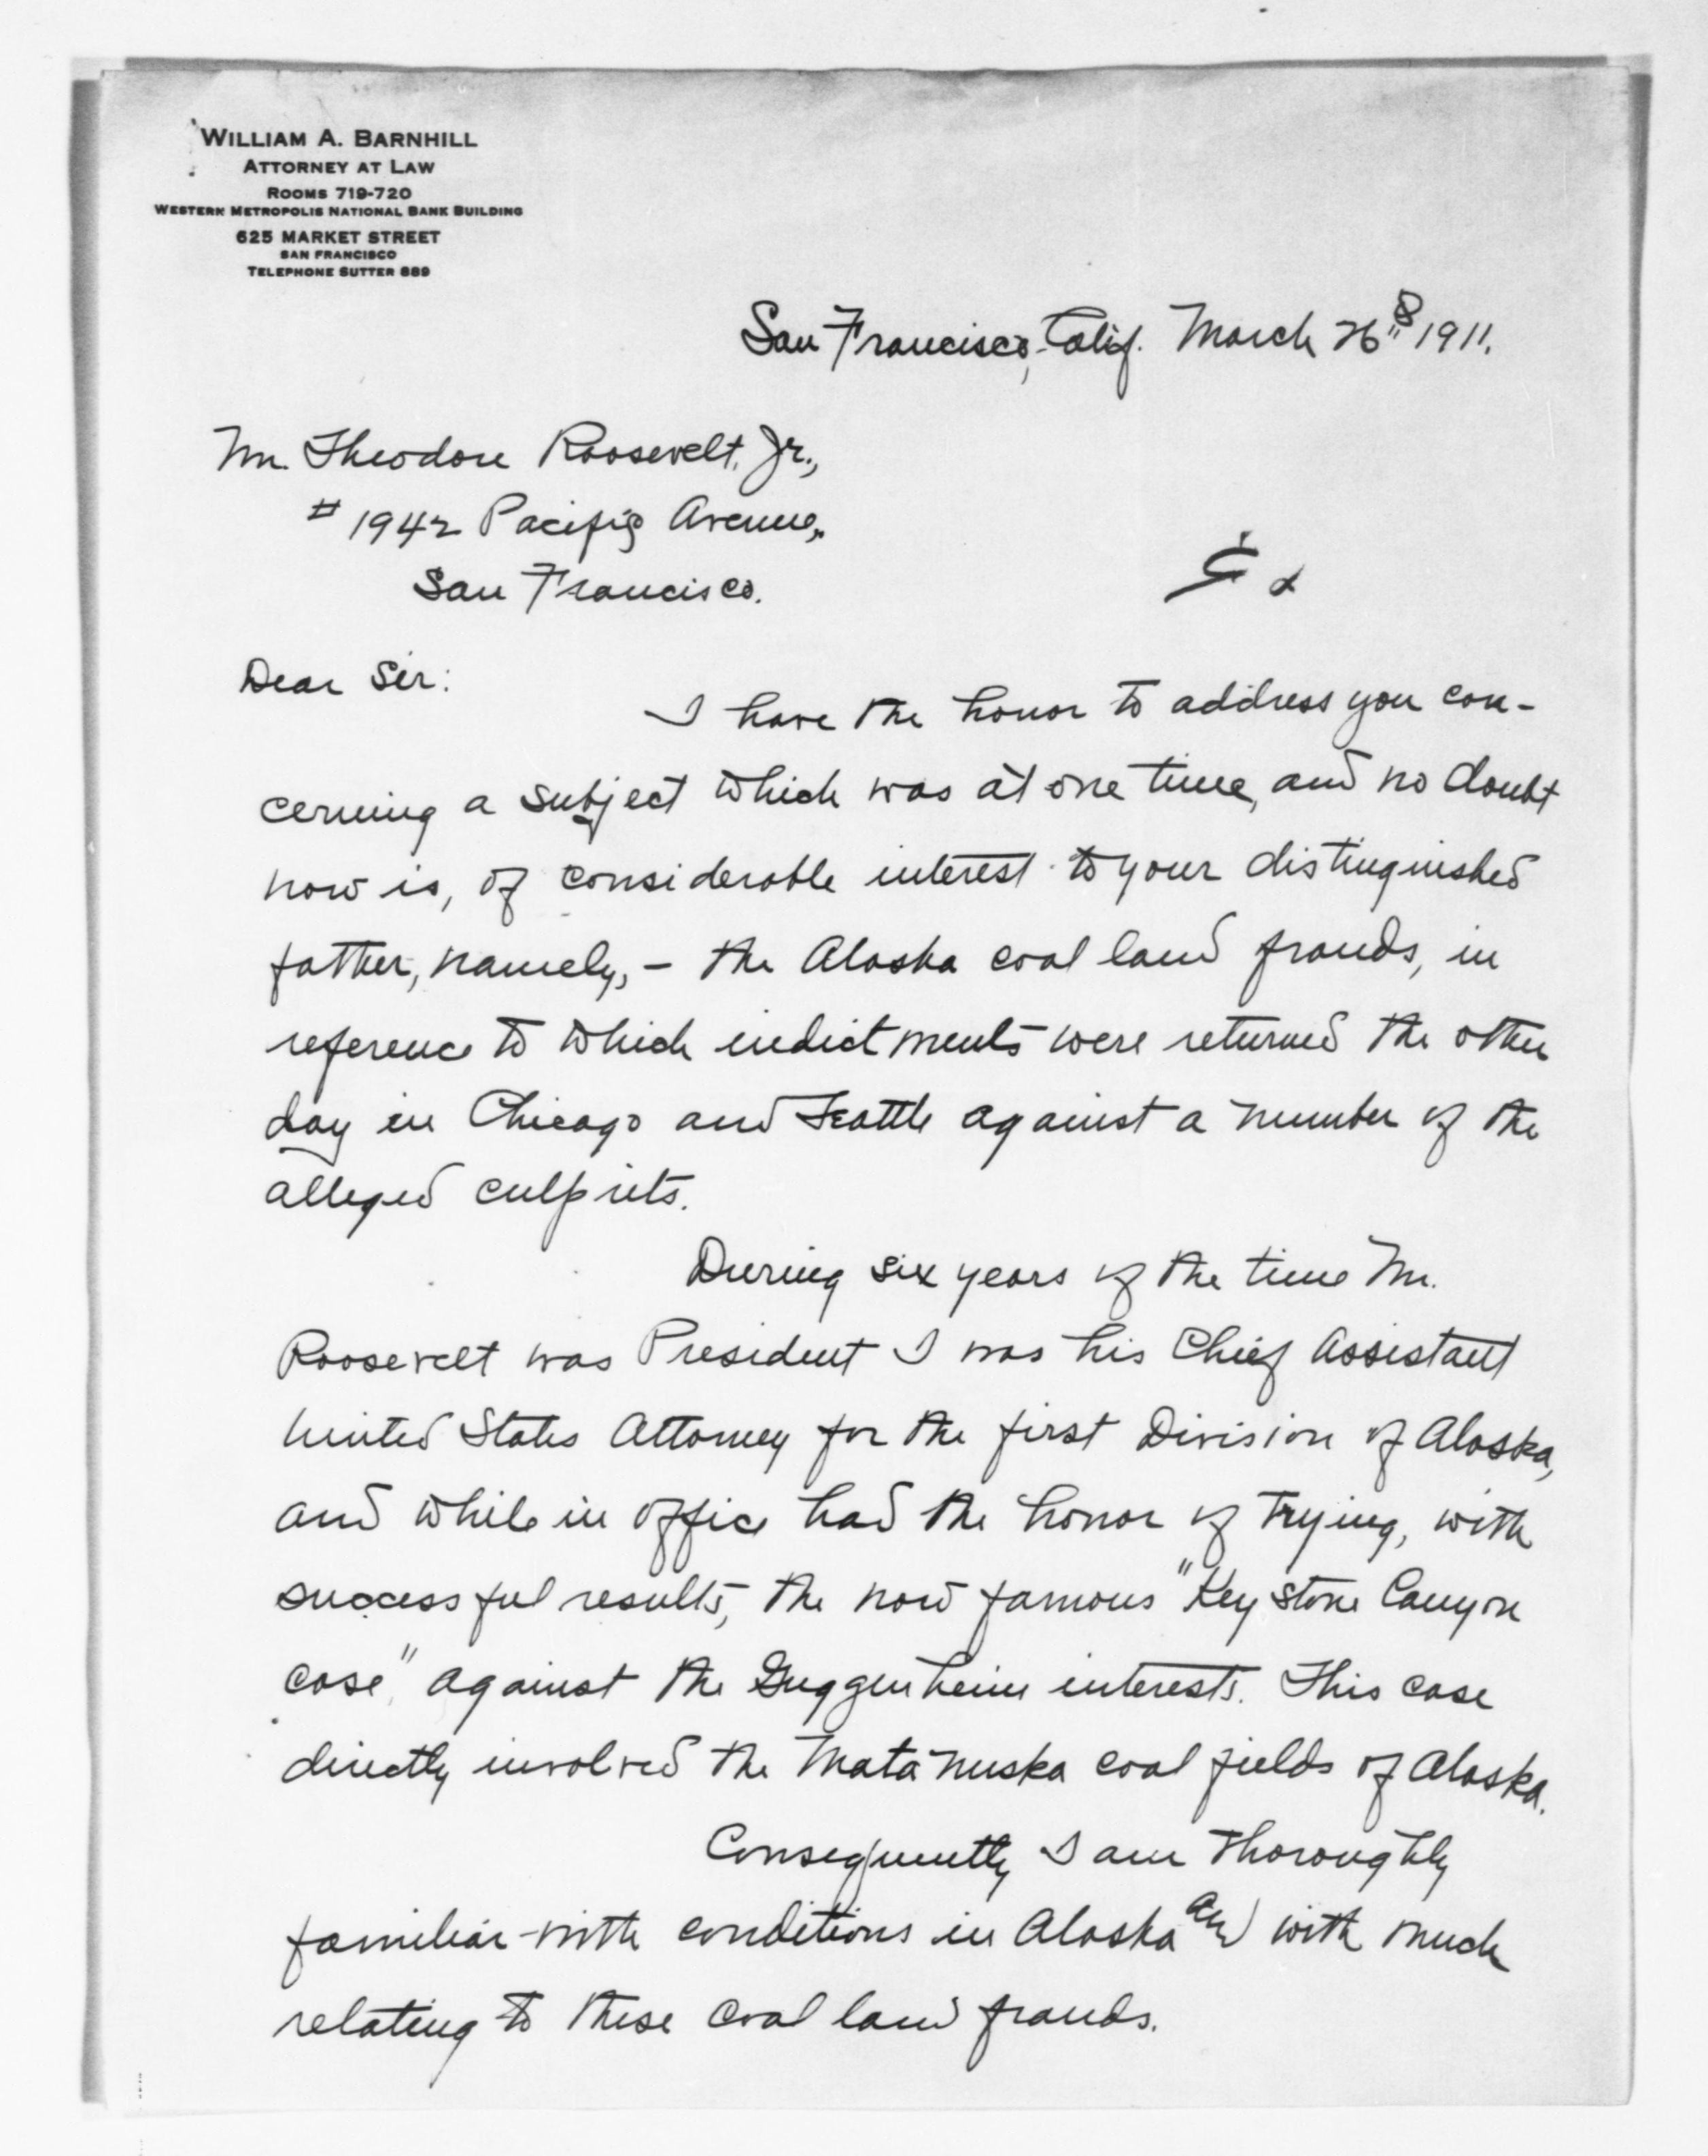 WILLIAM A. BARNHILL
ATTORNEY AT LAW
ROOMS 719-720
WESTERN METROPOLIS NATIONAL BANK BUILDING
625 MARKET STREET
SAN FRANCISCO
TELEPHONE SUTTER 889
San Francisco, Calif. March 26th 1911.
Mr. Theodore Roosevelt, Jr.,
# 1942 Pacific Avenue,
San Francisco.
Dear Sir:
I have the honor to address you con-
cerning a subject which was at one time, and no doubt
now is, of considerable interest to your distinguished
father, namely, - the Alaska coal land frauds, in
reference to which indictments were returned the other
day in Chicago and Seattle against a number of the
alleged culprits.
During six years of the time Mr.
Roosevelt was President I was his Chief Assistant
United States Attorney for the first Division of Alaska,
and while in office had the honor of trying, with
successful results, the now famous "Keystone Canyon
case," against the Guggenheim interests. This case
directly involved the Matanuska coal fields of Alaska.
Consequently I am thoroughly
familiar with conditions in Alaska and with much
relating to these coal land frauds.